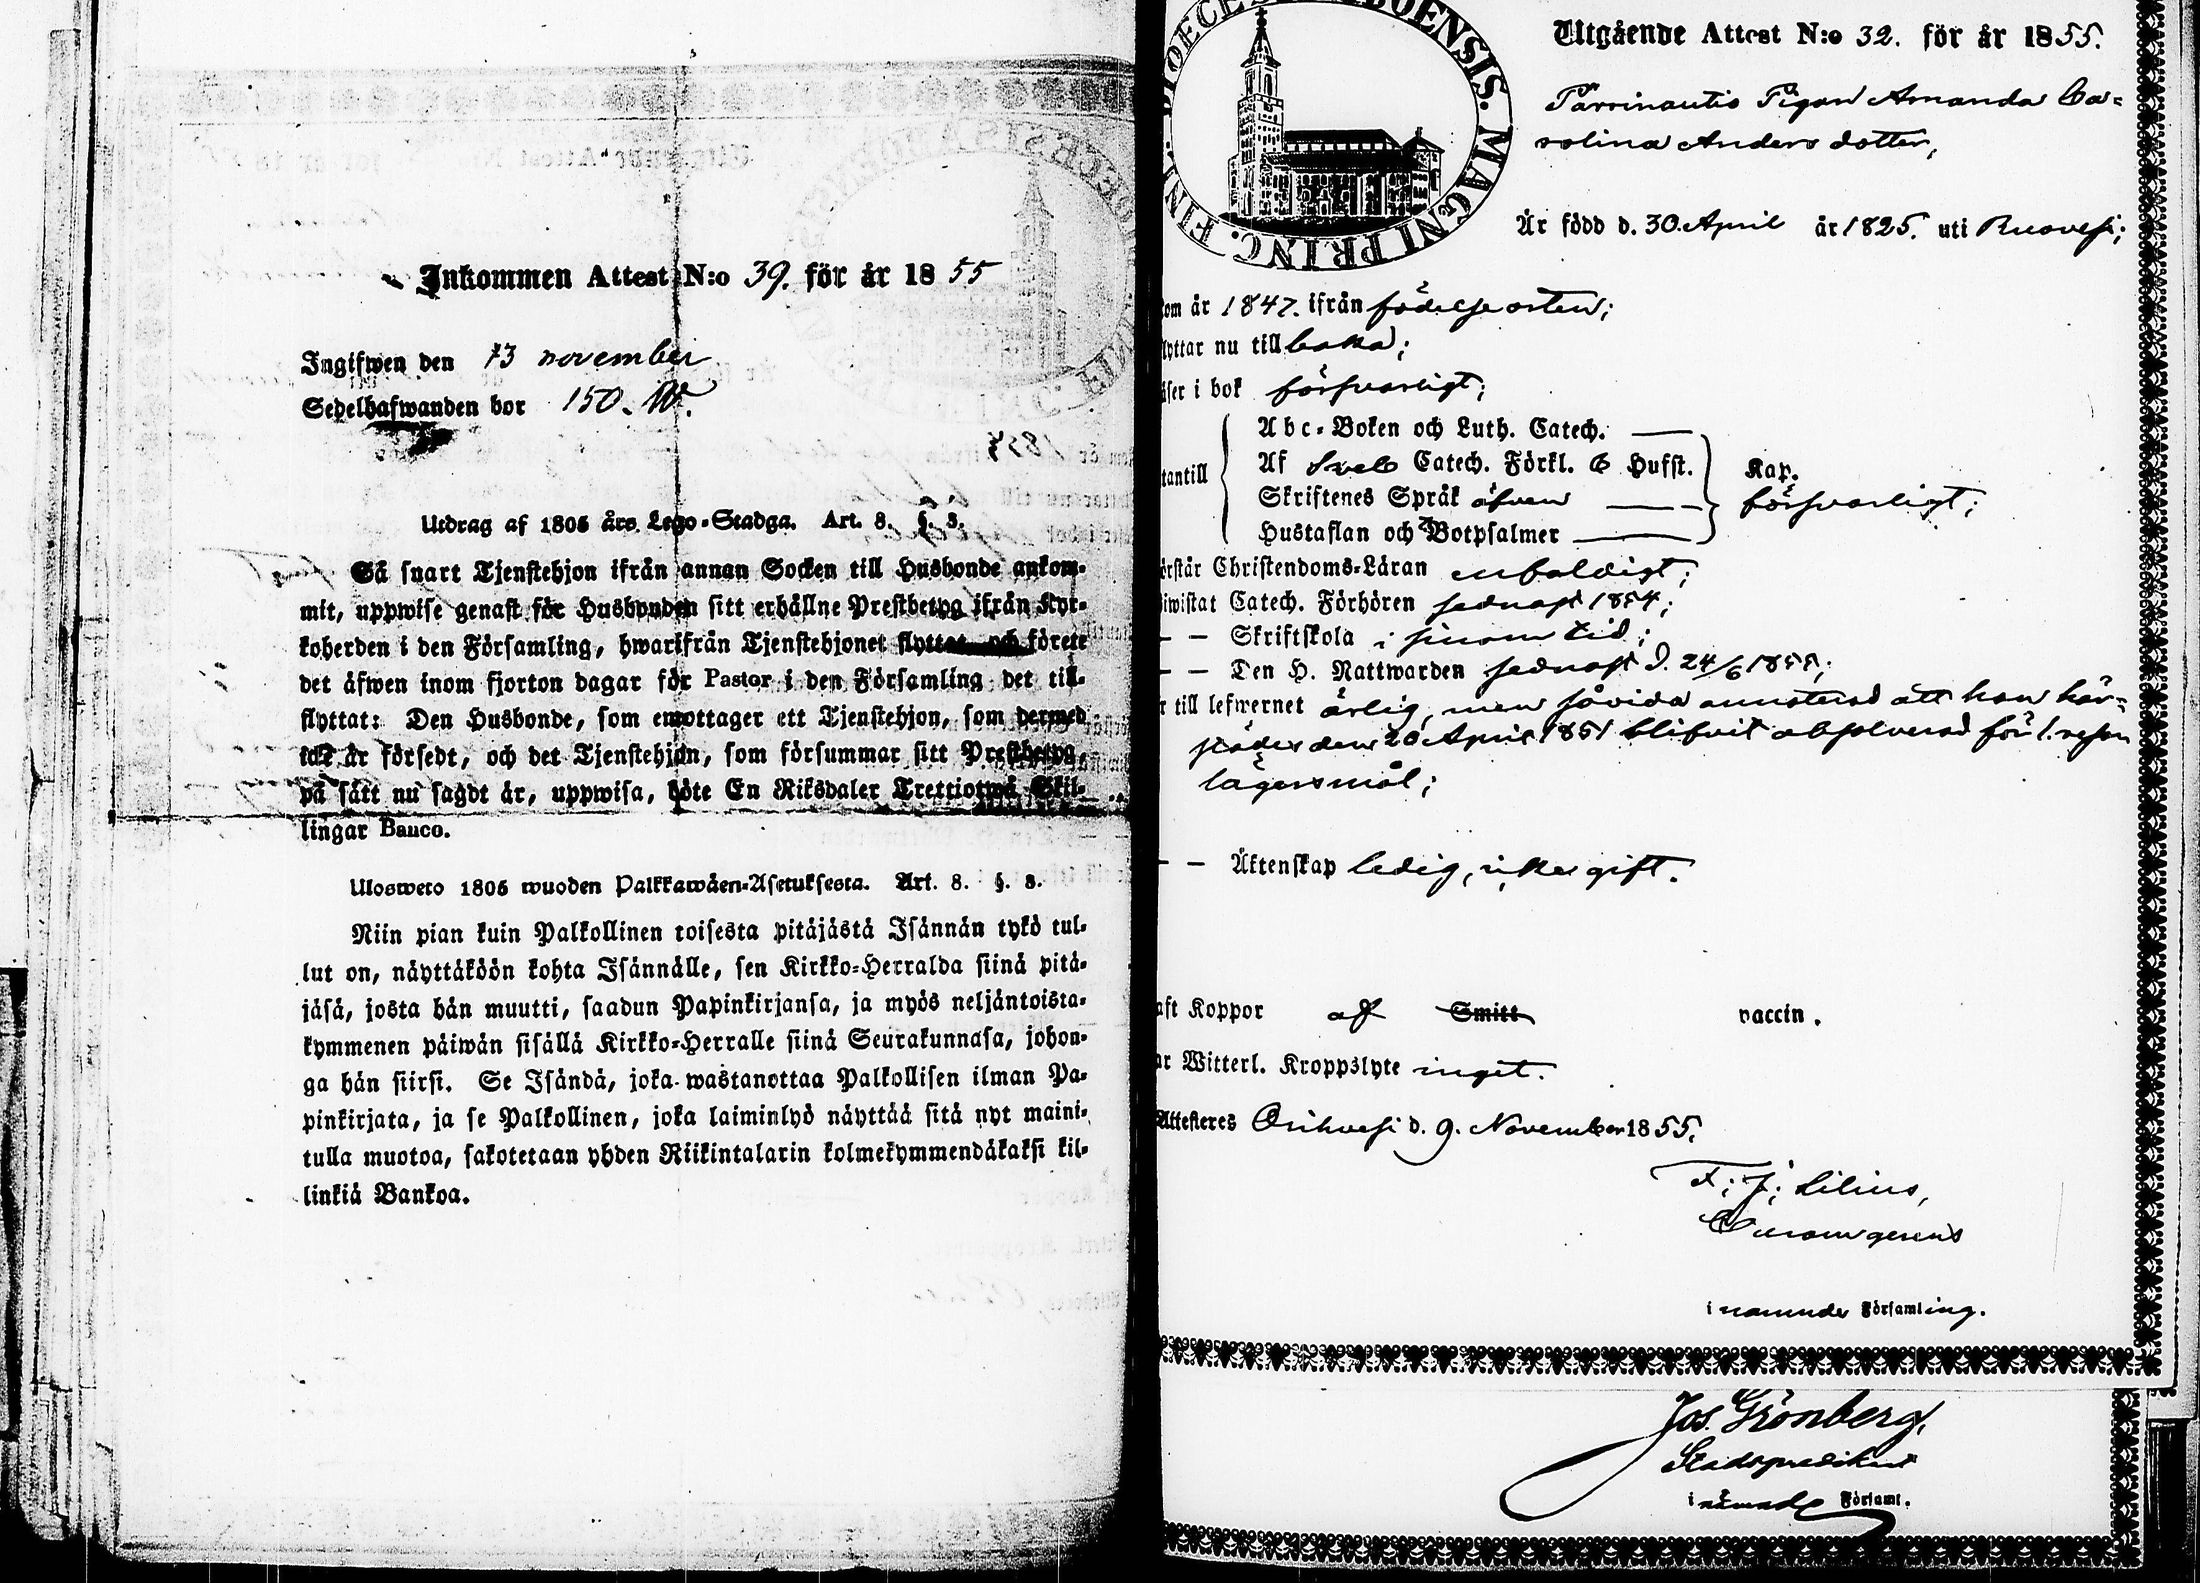 Inkommen Attest N:o 39. för år 1855
Ingifwen den 13 november
Sedelhafwanden bor 150. W.
Utdrag af 1805 års Lego-Stadga. Art. 8. §. 3.
Så snart Tjenstehjon ifrån annan Socken till Husbonde ankom-
mit, uppwise genast för Husbonden sitt erhållne Prestbetyg ifrån Kyr-
koherden i den Församling, hwarifrån Tjenstehjonet flyttat och förete
det äfwen inom fjorton dagar för Pastor i den Församling det till-
flyttat: Den Husbonde, som emottager ett Tjenstehjon, som dermed
icke är försedt, och det Tjenstehjon, som försummar sitt Prestbetyg,
på sätt nu sagdt är, uppwisa, böte En Riksdaler Trettiotwå Skil-
lingar Banco.
Ulosweto 1805 wuoden Palkkawäen-Asetuksesta. Art. 8. §. 3.
Niin pian kuin Palkollinen toisesta pitäjästä Isännän tykö tul-
lut on, näyttäköön kohta Isännälle, sen Kirkko-Herralda siinä pitä-
jäsä, josta hän muutti, saadun Papinkirjansa, ja myös neljäntoista-
kymmenen päiwän sisällä Kirkko-Herralle siinä Seurakunnasa, johon-
ga hän siirsi. Se Isändä, joka wastanottaa Palkollisen ilman Pa-
pinkirjata, ja se Palkollinen, joka laiminlyö näyttää sitä nyt maini-
tulla muotoa, sakotetaan yhden Riikintalarin kolmekymmendäkaksi kil-
linkiä Bankoa.
DIOECESIS ABOENSIS. MAGNI PRINC. FINL.
Utgående Attest N:o 32. för år 1855.
Pigan Amanda Ca-
rolina Anders dotter,
Är född d. 30 April år 1825. uti Ruovesi;
kom år 1847. ifrån födelse orten;
flyttar nu till baka;
läser i bok försvarligt;
Abc-Boken och Luth. Catech.
utantill Af Sveb Catech. Förkl. 6 Hufst. Kap.
Skriftenes Språk äfven försvarligt;
Hustaflan och Botpsalmer
förstår Christendoms-Läran enfaldigt;
biwistat Catech. Förhören sednast 1854;
— — Skriftskola i sinom tid;
— — Den H. Nattwarden sednast d. 24/6 1855;
är till lefwernet ärlig, men såvida annoterad att hon här-
städes den 20 April 1851 blifvit absolverad för 1. resan
lägersmål;
— — Äktenskap ledig, icke gift.
haft Koppor af Smitt vaccin.
har Witterl. Kroppslyte inget.
Attesteres Orihvesi d. 9. November 1855.
F: J: Lilius,
Curam gerens
i nämnde Församling.
Jos. Grönberg,
Stadspredikant
i nämnde Församl.